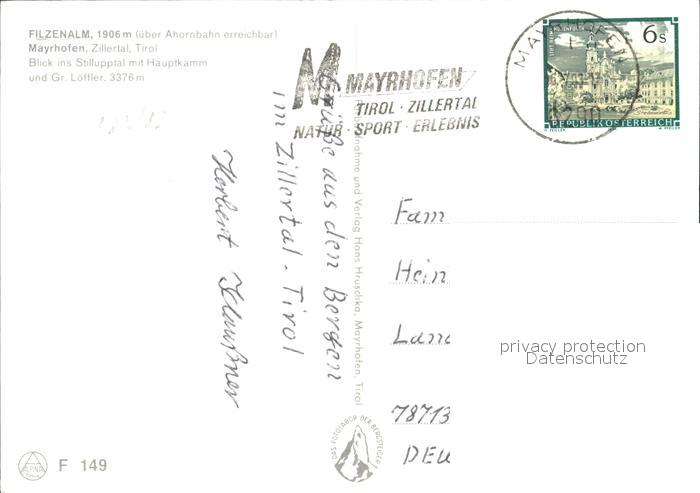 FILZENALM, 1906 m (über Ahornbahn erreichbar)
Mayrhofen, Zillertal, Tirol
Blick ins Stillupptal mit Hauptkamm
und Gr. Löffler, 3376 m
M MAYRHOFEN
TIROL · ZILLERTAL
NATUR · SPORT · ERLEBNIS
MAYRHOFEN
6290
6 S
REPUBLIK ÖSTERREICH
Grüße aus den Bergen
im Zillertal - Tirol
Herbert Klaußner
und Verlag Hans Hruschka, Mayrhofen, Tirol
Fam
Hein
Lan
78713
DEU
privacy protection
Datenschutz
DAS FOTOLABOR DER BERGSTEIGER
ALPINA
F 149